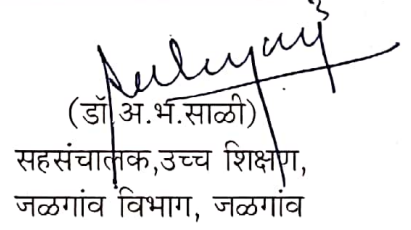 (डॉ.अ.भ.साळी)
सहसंचालक,उच्च शिक्षण,
जळगांव विभाग, जळगांव